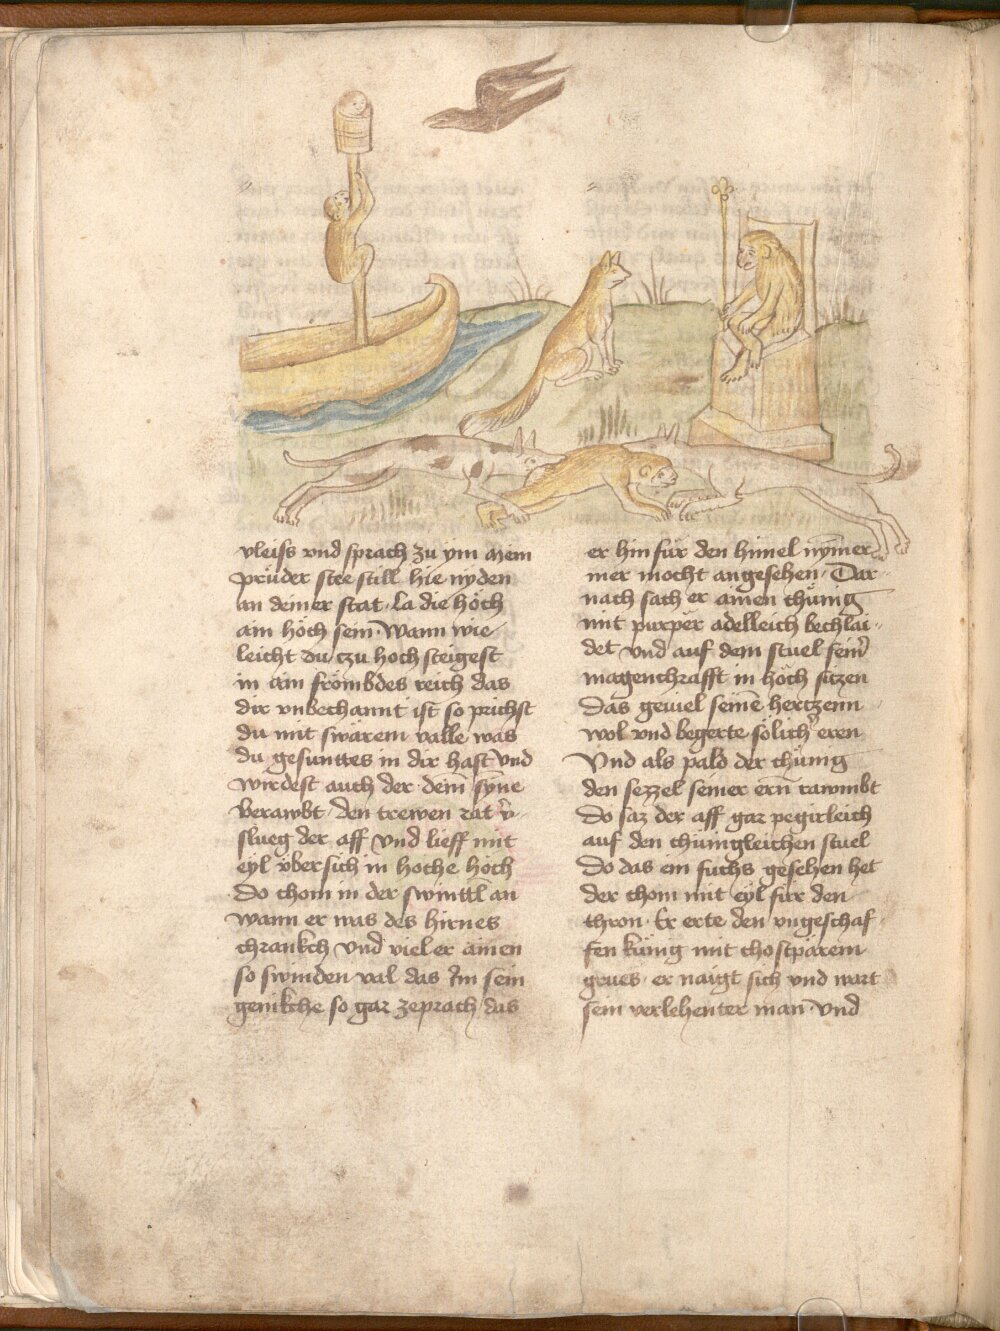 vleiss vnd sprach zu ym mein
prüder stee still hie nyden
an deiner stat · la die höch
ain höch sein · Wann wie
leicht du czu hoch steigest
in ain frömbdes reich das
dir vnbechannt ist so prichst
du mit swärem valle was
du gesunttes in dir hast vnd
wirdest auch der dein̄ syne
berawbt · den trewen rat v̄
slueg der aff vnd lieff mit
eyl vbersich in hoche höch
Do chom in der swinttl an
wann er was des hirnes
chrankch vnd viel er ainen
so swinden val das Im sein
genikche so gar zeprach das
er hinfür den himel nymer
mer mocht angesehen · Dar
nach sach er ainen chünig
mit purper adelleich bechlai
det vnd auf dem stuel sein͛
magenchrafft in höch siczen
Das geuiel seinē hertzenn
wol vnd begerte sölich͛ eren
Vnd als pald der chünig
den sezzel seiner ern̄ rawmbt
Do saz der aff gar pegirleich
auf den chünigleichen stuel
Do das ein fuchs gesehen het
der chom mit eyl für den
thron · Er erte den vngeschaf
fen künig mit chostparem
grues · er naigt sich vnd wart
sein verlehenter man · vnd